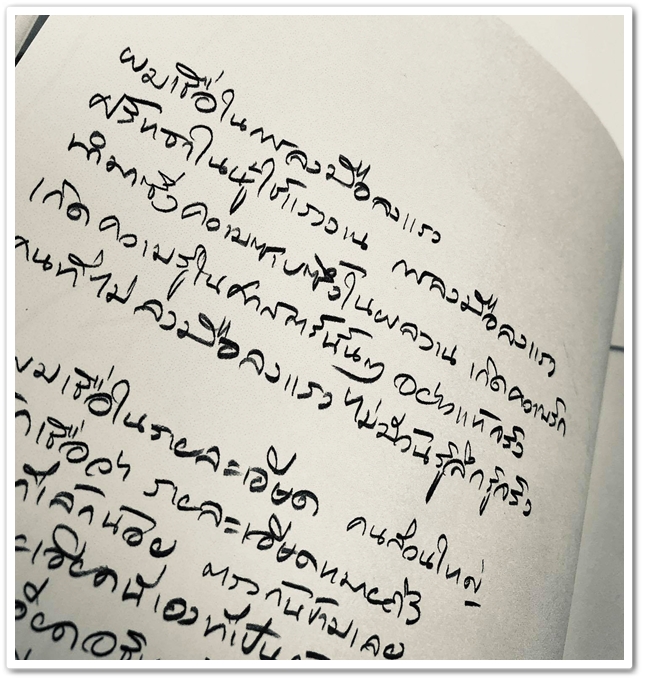 ผมเชื่อในการลงมือลงแรง
ศรัทธาในผู้ใช้แรงงาน การลงมือลงแรง
นำมาซึ่งความภาคภูมิใจในผลงาน เกิดความรัก
เกิดความรู้ในศาสตร์นั้นๆ อย่างแท้จริง
คนที่ไม่ลงมือลงแรง ไม่มีวันรู้สึกรู้จริง
ผมเชื่อในรายละเอียด คนส่วนใหญ่
เชื่อว่า รายละเอียดหมายถึง
ที่เล็กน้อย ตรงกันข้ามเลย
ละเอียดนี่เองที่เป็น